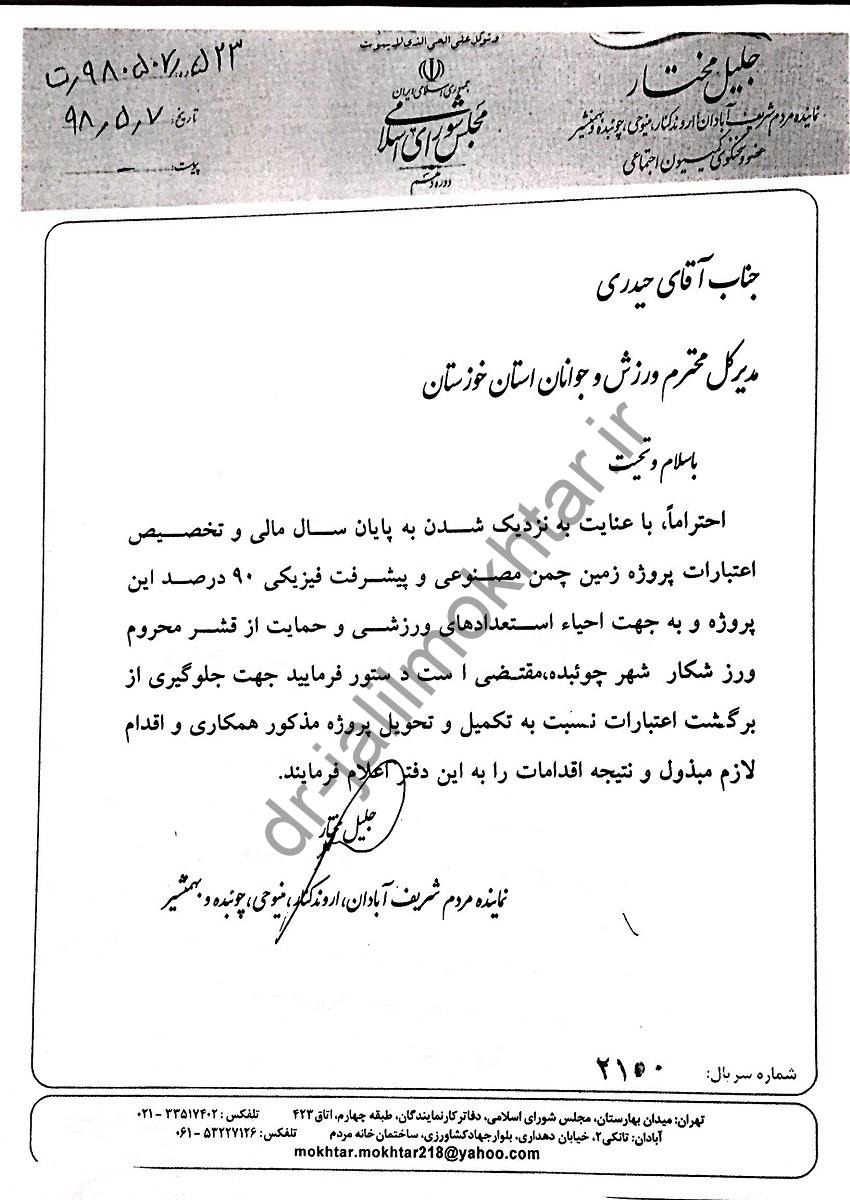 وتوکل علی الحی الذی لا یموت
جمهوری اسلامی ایران
مجلس شورای اسلامی
دوره دهم
جلیل مختار
نماینده مردم شریف آبادان، اروندکنار، منیوحی، چوئبده و بهمنشیر
عضو و سخنگوی کمیسیون اجتماعی
تاریخ: ۹۸٫۵٫۷
پیوست: ــ
جناب آقای حیدری
مدیرکل محترم ورزش و جوانان استان خوزستان
باسلام و تحیت
احتراماً، با عنایت به نزدیک شدن به پایان سال مالی و تخصیص
اعتبارات پروژه زمین چمن مصنوعی و پیشرفت فیزیکی ۹۰ درصد این
پروژه و به جهت احیاء استعدادهای ورزشی و حمایت از قشر محروم
ورز شکار شهر چوئبده،مقتضی ا ست د ستور فرمایید جهت جلوگیری از
برگشت اعتبارات نسبت به تکمیل و تحویل پروژه مذکور همکاری و اقدام
لازم مبذول و نتیجه اقدامات را به این دفتر اعلام فرمایند.
جلیل مختار
نماینده مردم شریف آبادان، اروندکنار، منیوحی، چوئبده و بهمنشیر
شماره سریال: ۲۱۵۰
تهران: میدان بهارستان، مجلس شورای اسلامی، دفاتر کار نمایندگان، طبقه چهارم، اتاق ۴۲۳ تلفکس: ۳۳۵۱۷۴۰۲ - ۰۲۱
آبادان: تانکی۲، خیابان دهداری، بلوار جهاد کشاورزی، ساختمان خانه مردم تلفکس: ۵۳۲۲۷۱۲۶ - ۰۶۱
mokhtar.mokhtar218@yahoo.com
dr-jalilmokhtar.ir